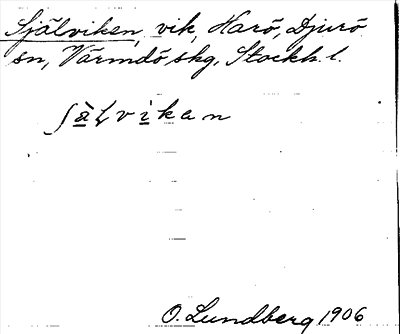 Själviken, vik, Harö, Djurö
sn, Värmdö skg, Stockh. l.
ʃàɭvikan
O. Lundberg 1906